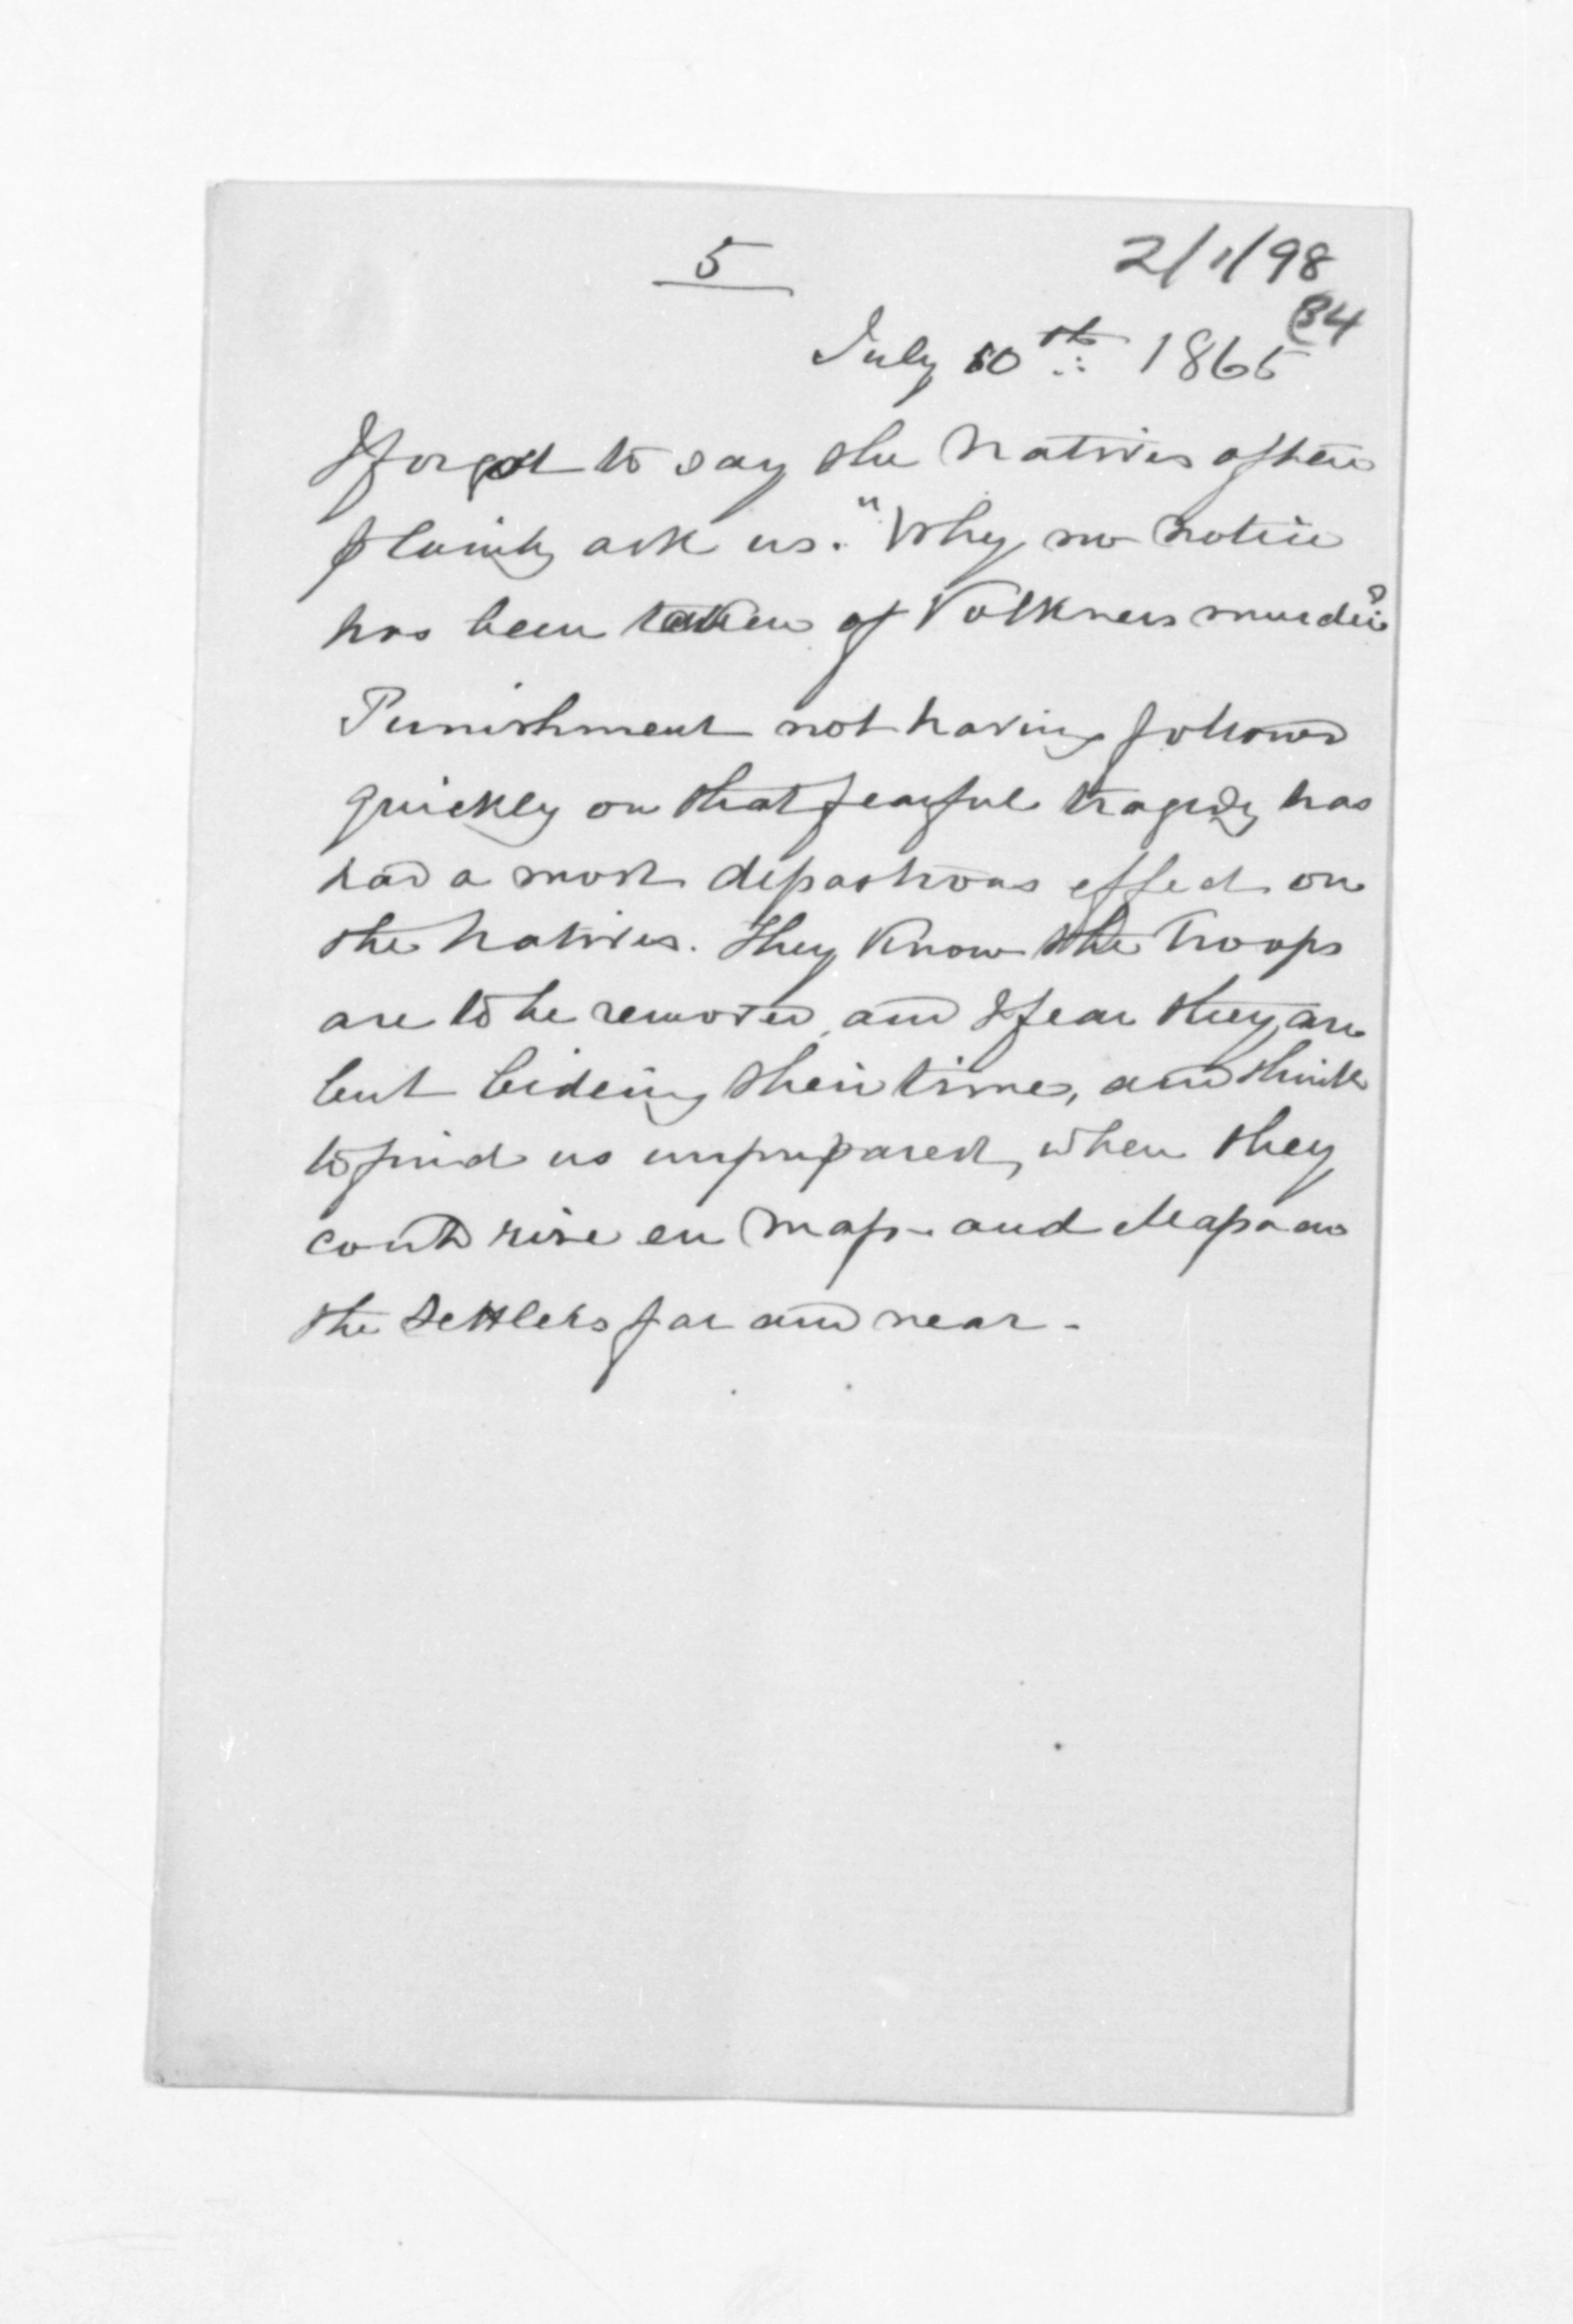 5
2/1/98
(34
July 10th 1865
I forgot to say the Natives often
plainly ask us. "Why no notice
has been taken of Volkners murder?
Punishment not having followed
quickly on that fearful tragedy has
had a most disastrous effect on
the Natives. They know the Troops
are to be removed, and I fear they are
but bideing their time, and think
to find us unprepared, when they
could rise en mass and
the Settlers far and near -